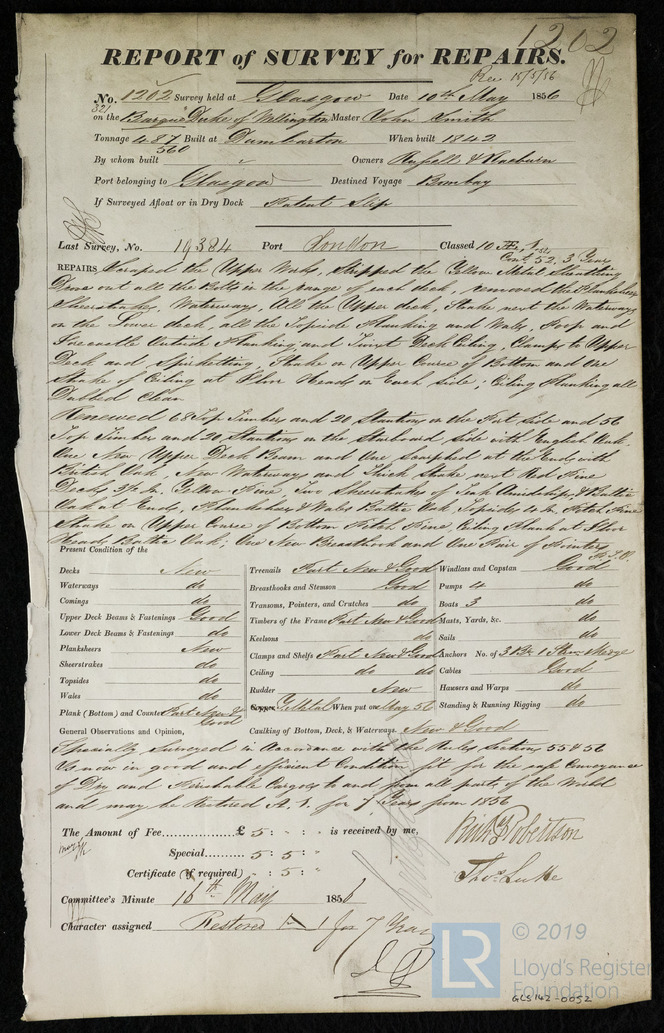 1202
REPORT of SURVEY for REPAIRS.
Rec 15/5/56
No. 1202 Survey held at Glasgow Date 10th May 1856
321
on the Barque Duke of Wellington Master John Smith
Tonnage 487 Built at Dumbarton When built 1842
560
By whom built Owners Russell & Raeburn
Port belonging to Glasgow Destined Voyage Bombay
If Surveyed Afloat or in Dry Dock Patent Slip
Last Survey, No. 19384 Port London Classed 10
Cont. 52. 3 Years
REPAIRS Scraped the Upper Works, Stripped the Yellow Metal Sheathing
Drove out all the Bolts in the range of each deck, removed the Planksheer
Sheerstrakes, Waterways, All the Upper deck, Strake next the Waterways
on the Lower deck, all the Topside Planking and Wales, Poop and
Forecastle Outside Planking and Twixt Deck Ceiling, Clamps to Upper
Deck and Spirketting Strake on Upper Course of Bottom and One
Strake of Ceiling at Floor Heads on Each Side; Ceiling Planking all
Dubbed Clean
Renewed 68 Top Timbers and 20 Stantions on the Port Side and 56
Top Timber and 20 Stantions on the Starboard Side with English Oak.
One New Upper Deck Beam and One Scarphed at the Ends with
British Oak New Waterways and Thick Strake next Red Pine
Decks 3½ In. Yellow Pine, Two Sheerstrakes of Teak Amidships, & Baltic
Oak at Ends, Planksheer & Wales Baltic Oak, Topsides 4 In. Pitch Pine
Strake on Upper Course of Bottom Pitch Pine Ceiling Plank at Floor
Heads Baltic Oak; One New Breasthook and One Pair of Pointers
P.T.O.
Present Condition of the
Decks New Treenails Part New & Good Windlass and Capstan Good
Waterways do Breasthooks and Stemson Good Pumps 4 do
Comings do Transoms, Pointers, and Crutches do Boats 3 do
Upper Deck Beams & Fastenings Good Timbers of the Frame Part New & Good Masts, Yards, &c. do
Lower Deck Beams & Fastenings do Keelsons do Sails do
Planksheers New Clamps and Shelfs Part New & Good Anchors No. of 3 Br. 1 Strm. Kedge
Sheerstrakes do Ceiling do do Cables Good
Topsides do Rudder New Hawsers and Warps do
Wales do Copper Y. Metal When put on May 56 Standing & Running Rigging do
Plank (Bottom) and Counter Part New & Good
Caulking of Bottom, Deck, & Waterways. New & Good
General Observations and Opinion,
Specially Surveyed in Accordance with the Rules Sections 55 & 56
Is now in good and efficient Condition fit for the safe Conveyance
of Dry and Perishable Cargoes to and from all parts of the World
and may be Restored A. 1. for 7 Years from 1856
The Amount of Fee £ 5 : " : " is received by me,
Special 5 : 5 : "
Certificate (if required) : 5 :
Richd. Robertson
Thos. Luke
Committee's Minute 16th May 1856
Character assigned Restored A 1 for 7 Years
LR
© 2019
Lloyd's Register
Foundation
GLS142-0052